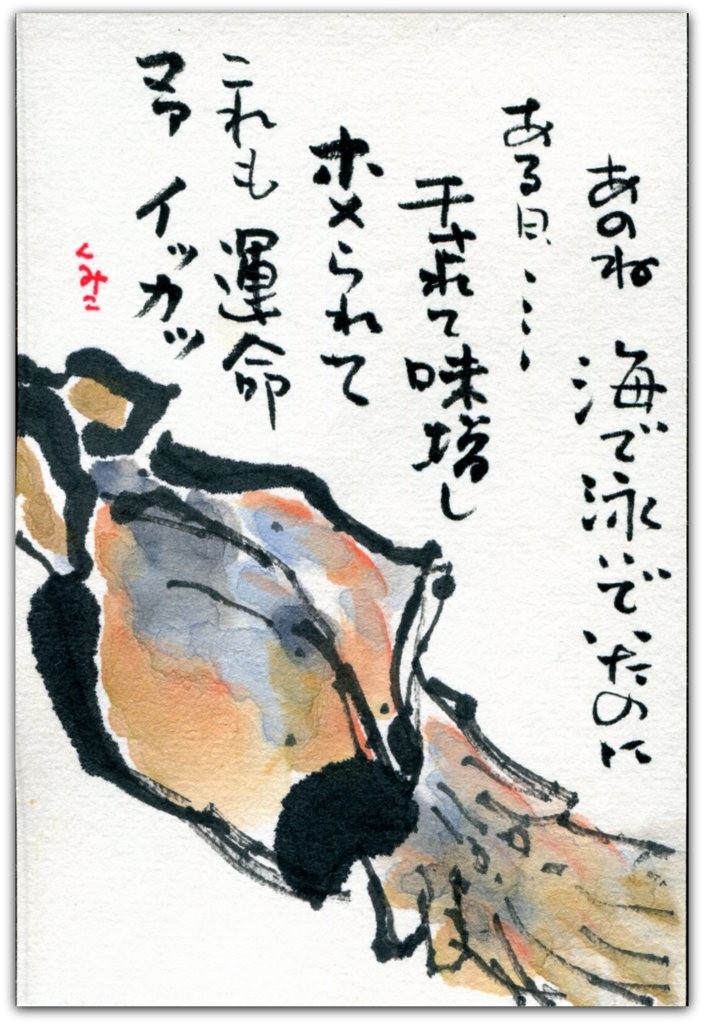 あのね 海で泳いでいたのに
ある日・・・
干されて味増し
ホメられて
これも 運命
マア イッカッ
くみこ